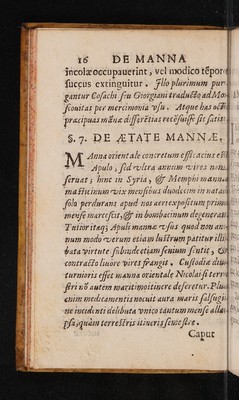 16 DE MANNA
incolæ occupauerint, vel modico tẽpore
succus extinguitur. Illo plurimum pur
gantur Cosachi seu Giorgiani traducto ad Mos
scouitas per mercimonia vsu. Atque has octo
præcipuas mãnæ differẽtias recẽsuisse sit satis
§. 7. DE ÆTATE MANNÆ.
MAnna orientale concretum efficacius est
Apulo, sed vltra annum vires non
seruat; hinc in Syria, & Memphi manna
masticinum vix mensibus duodecim in natali
solo perdurans apud nos aeri expositum primo
mense marcescit, & in bombacinum degenerat
Tutior itaq; Apuli mannæ vsus quod non an-
num modo verum etiam lustrum patitur illi
bata virtute subinde etiam senium sentit, &
contracto liuore vires frangit. Custodia diu
turnioris esset manna orientale Nicolai si terre
stri nõ autem maritimo itinere deferetur. Plus
enim medicamentis nocuit aura maris salsugi
ne incidenti delibuta vnico tantum mense alla
psa, quàm terrestris itineris semestre.
Caput